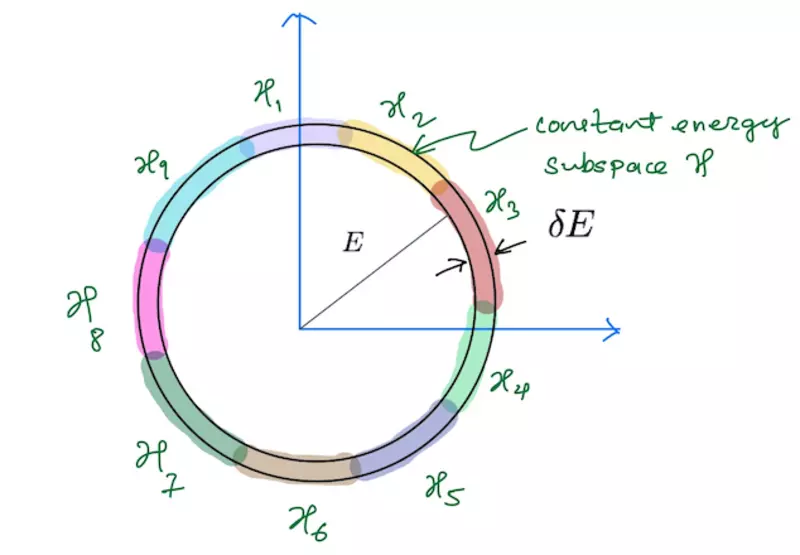 ℋ₁
ℋ₂
constant energy
subspace ℋ
ℋ₉
ℋ₃
δE
E
ℋ₈
ℋ₄
ℋ₇
ℋ₅
ℋ₆